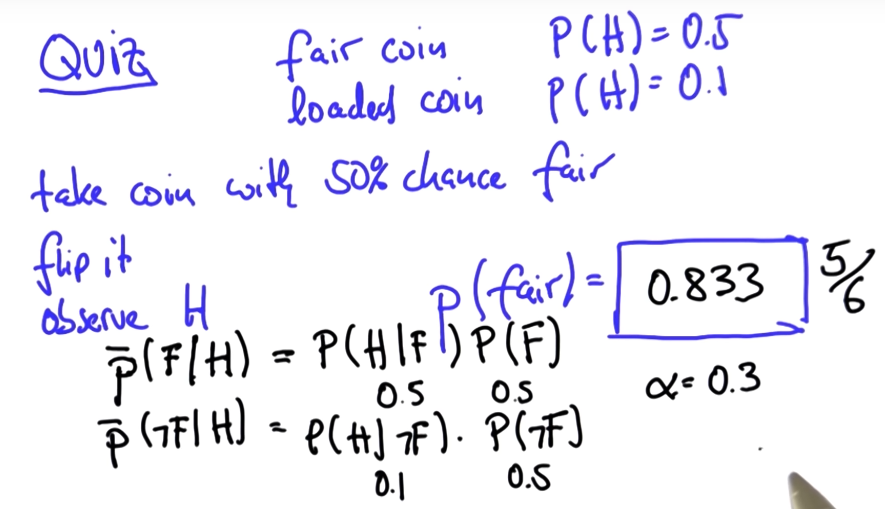 Quiz
fair coin P(H) = 0.5
loaded coin P(H) = 0.1
take coin with 50% chance fair
flip it
observe H
P(fair) = 0.833 5/6
p̄(F|H) = P(H|F) P(F)
0.5 0.5
α = 0.3
p̄(¬F|H) = P(H|¬F) · P(¬F)
0.1 0.5